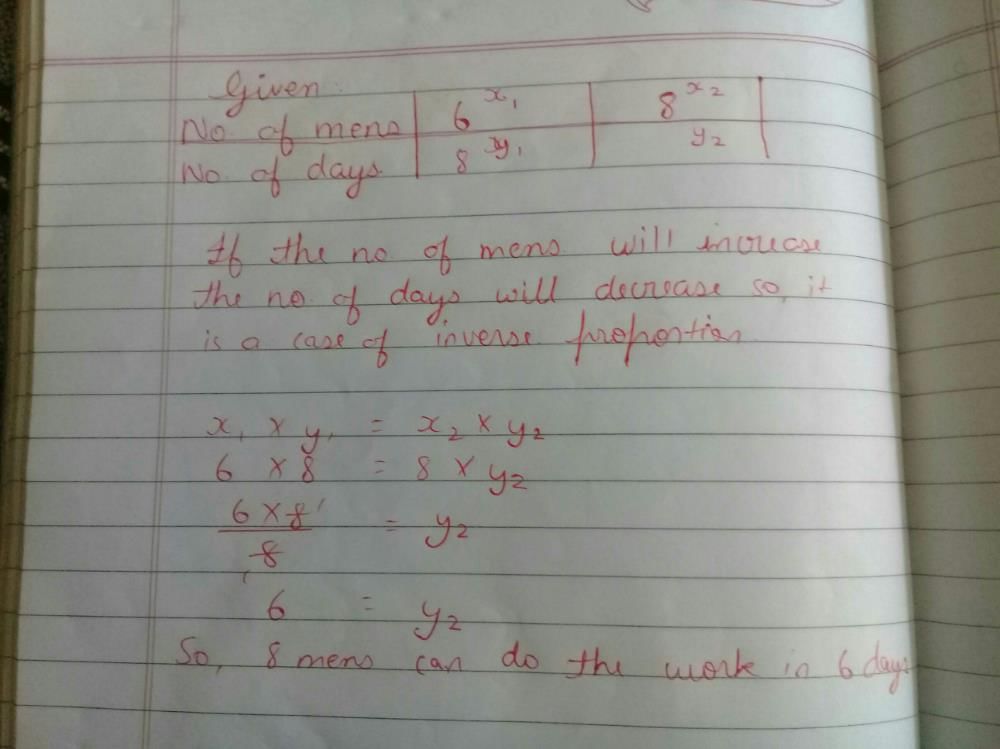 Given
No. of mens 6 x₁ 8 x₂
No. of days 8 y₁ y₂
If the no of mens will increase
the no. of days will decrease so, it
is a case of inverse proportion
x₁ × y₁ = x₂ × y₂
6 × 8 = 8 × y₂
6 × 8 1 = y₂
8
1
6 = y₂
So, 8 mens can do the work in 6 days